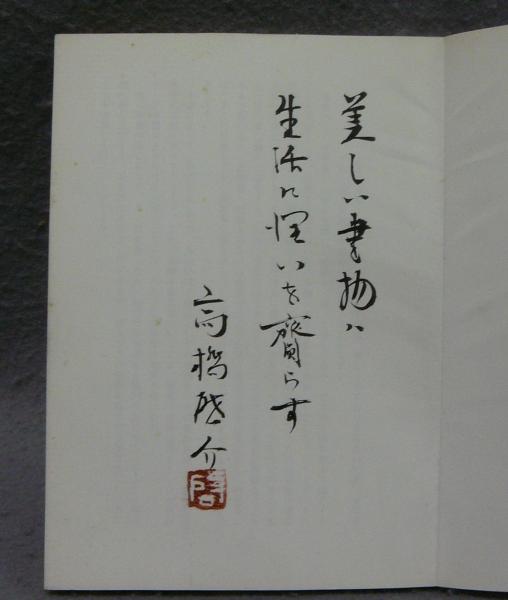 美しい書物は
生活に潤いを齎らす
高橋啓介
啓